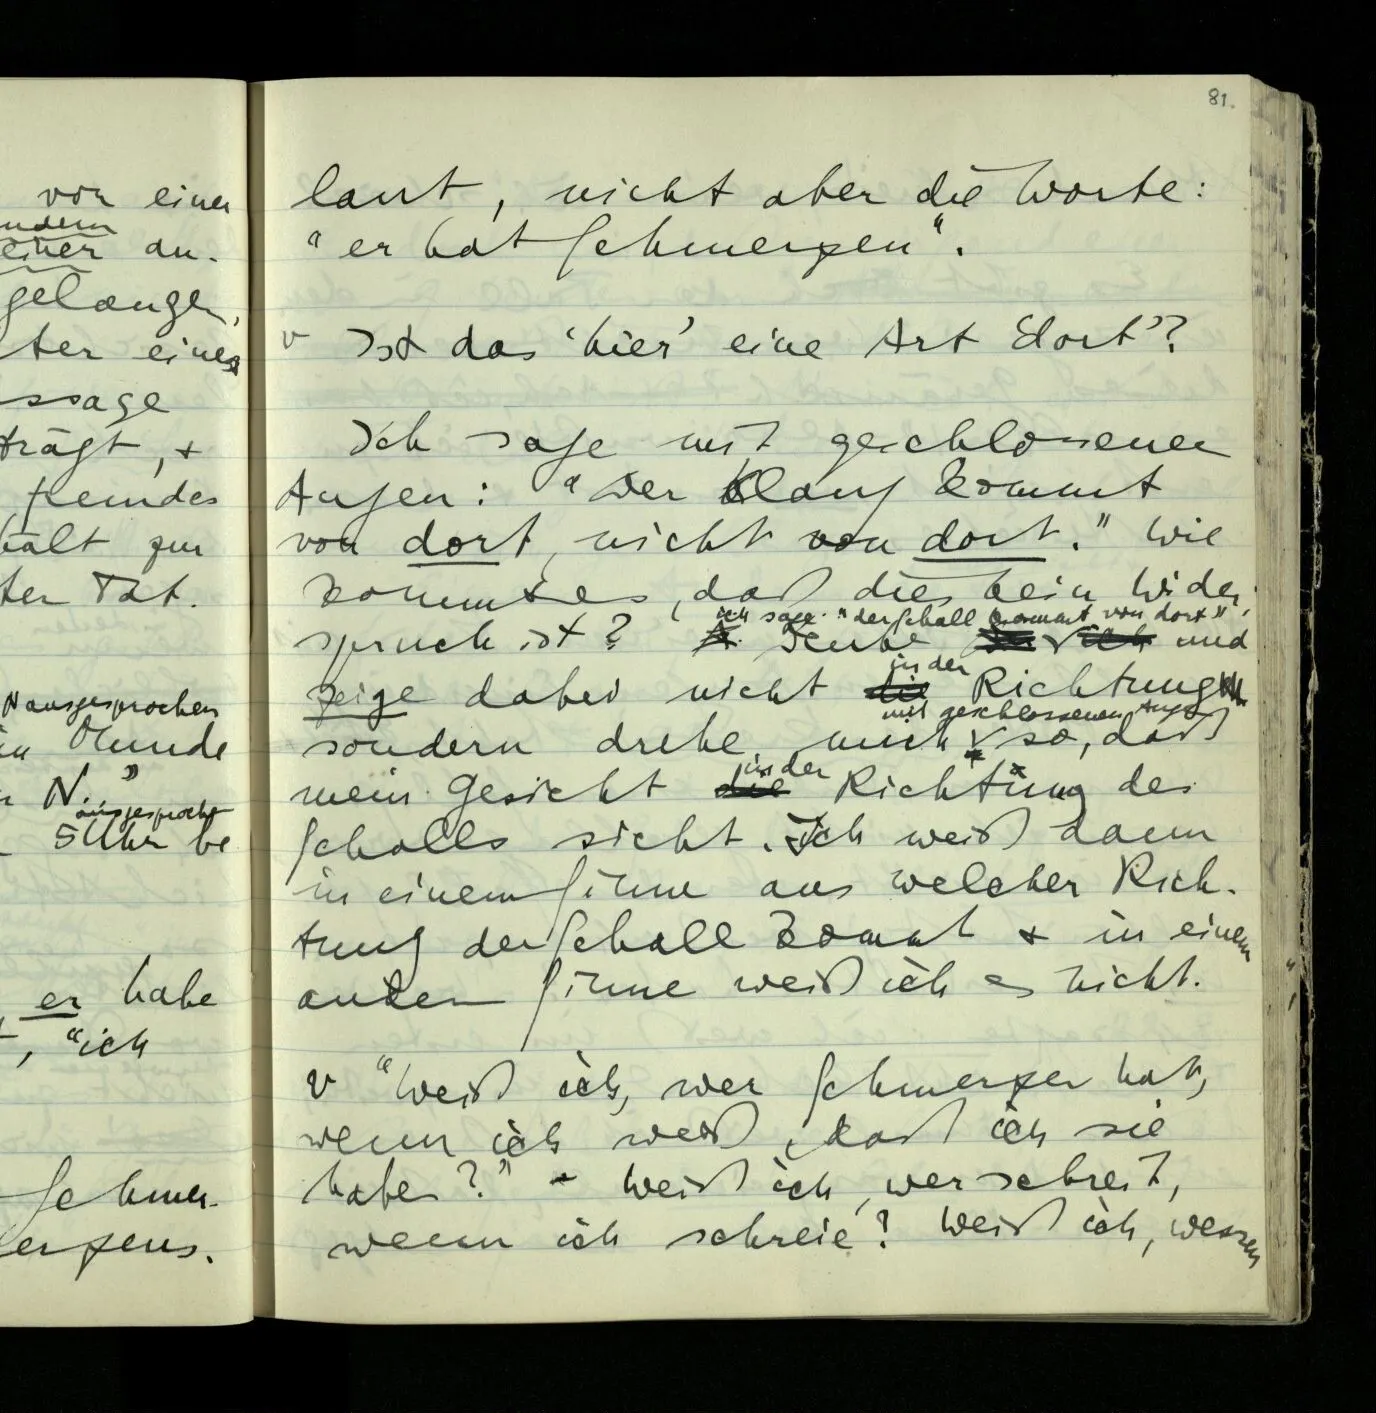 von einer
ndern
einer an-
gelangen,
ter eines
ssage
trägt, +
fremdes
hält zur
ter Tat.
N ausgesprochen
im Munde
N."
ausgesprochen
5 Uhr be
er habe
, "ich
Schmer-
erzens.
81.
laut, nicht aber die Worte:
"er hat Schmerzen".
v Ist das 'hier' eine Art 'dort'?
Ich sage mit geschlossenen
Augen: "Der Klang kommt
von dort, nicht von dort." Wie
kommt es, daß dies kein Wider-
ich sage: "der Schall kommt von dort"
spruch ist? und
in der
zeige dabei nicht die Richtung
mit geschlossenen Augen
sondern drehe mich so, daß
in der
mein Gesicht die Richtung des
Schalls sieht. Ich weiß dann
in einem Sinne aus welcher Rich-
tung der Schall kommt + in einem
andern Sinne weiß ich es nicht.
v "Weiß ich, wer Schmerzen hat,
wenn ich weiß, daß ich sie
habe?" – Weiß ich, wer schreit,
wenn ich schreie? Weiß ich, wessen